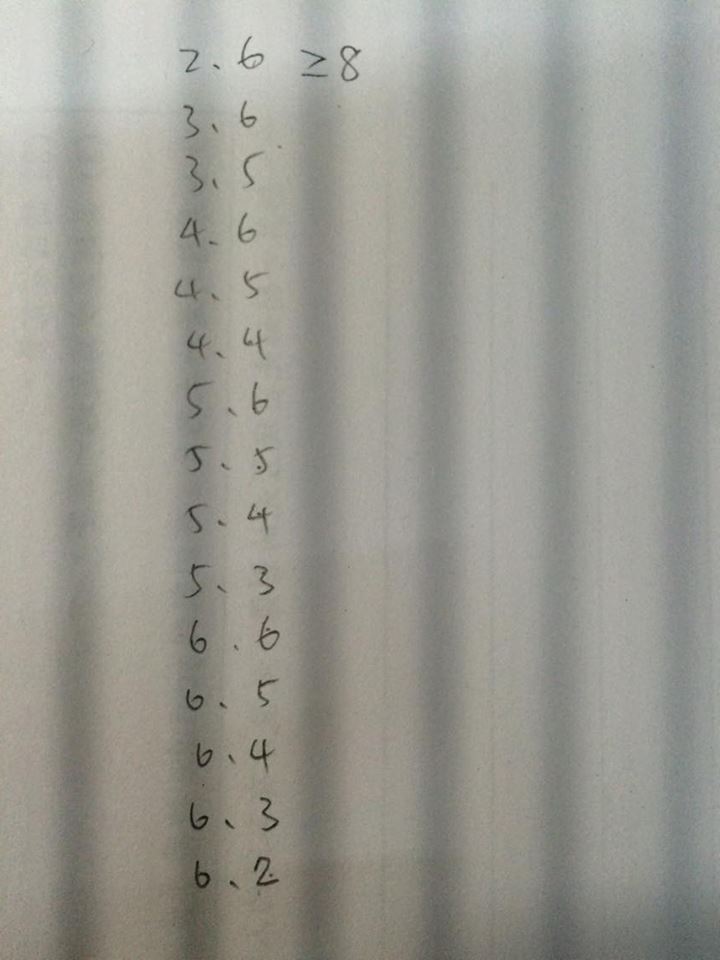 2、6 ≥8
3、6
3、5
4、6
4、5
4、4
5、6
5、5
5、4
5、3
6、6
6、5
6、4
6、3
6、2